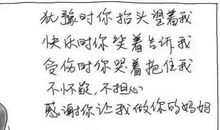 犹豫时你抬头望着我
快乐时你笑着告诉我
受伤时你哭着抱住我
不怀疑，不担心
感谢你让我做你的妈妈